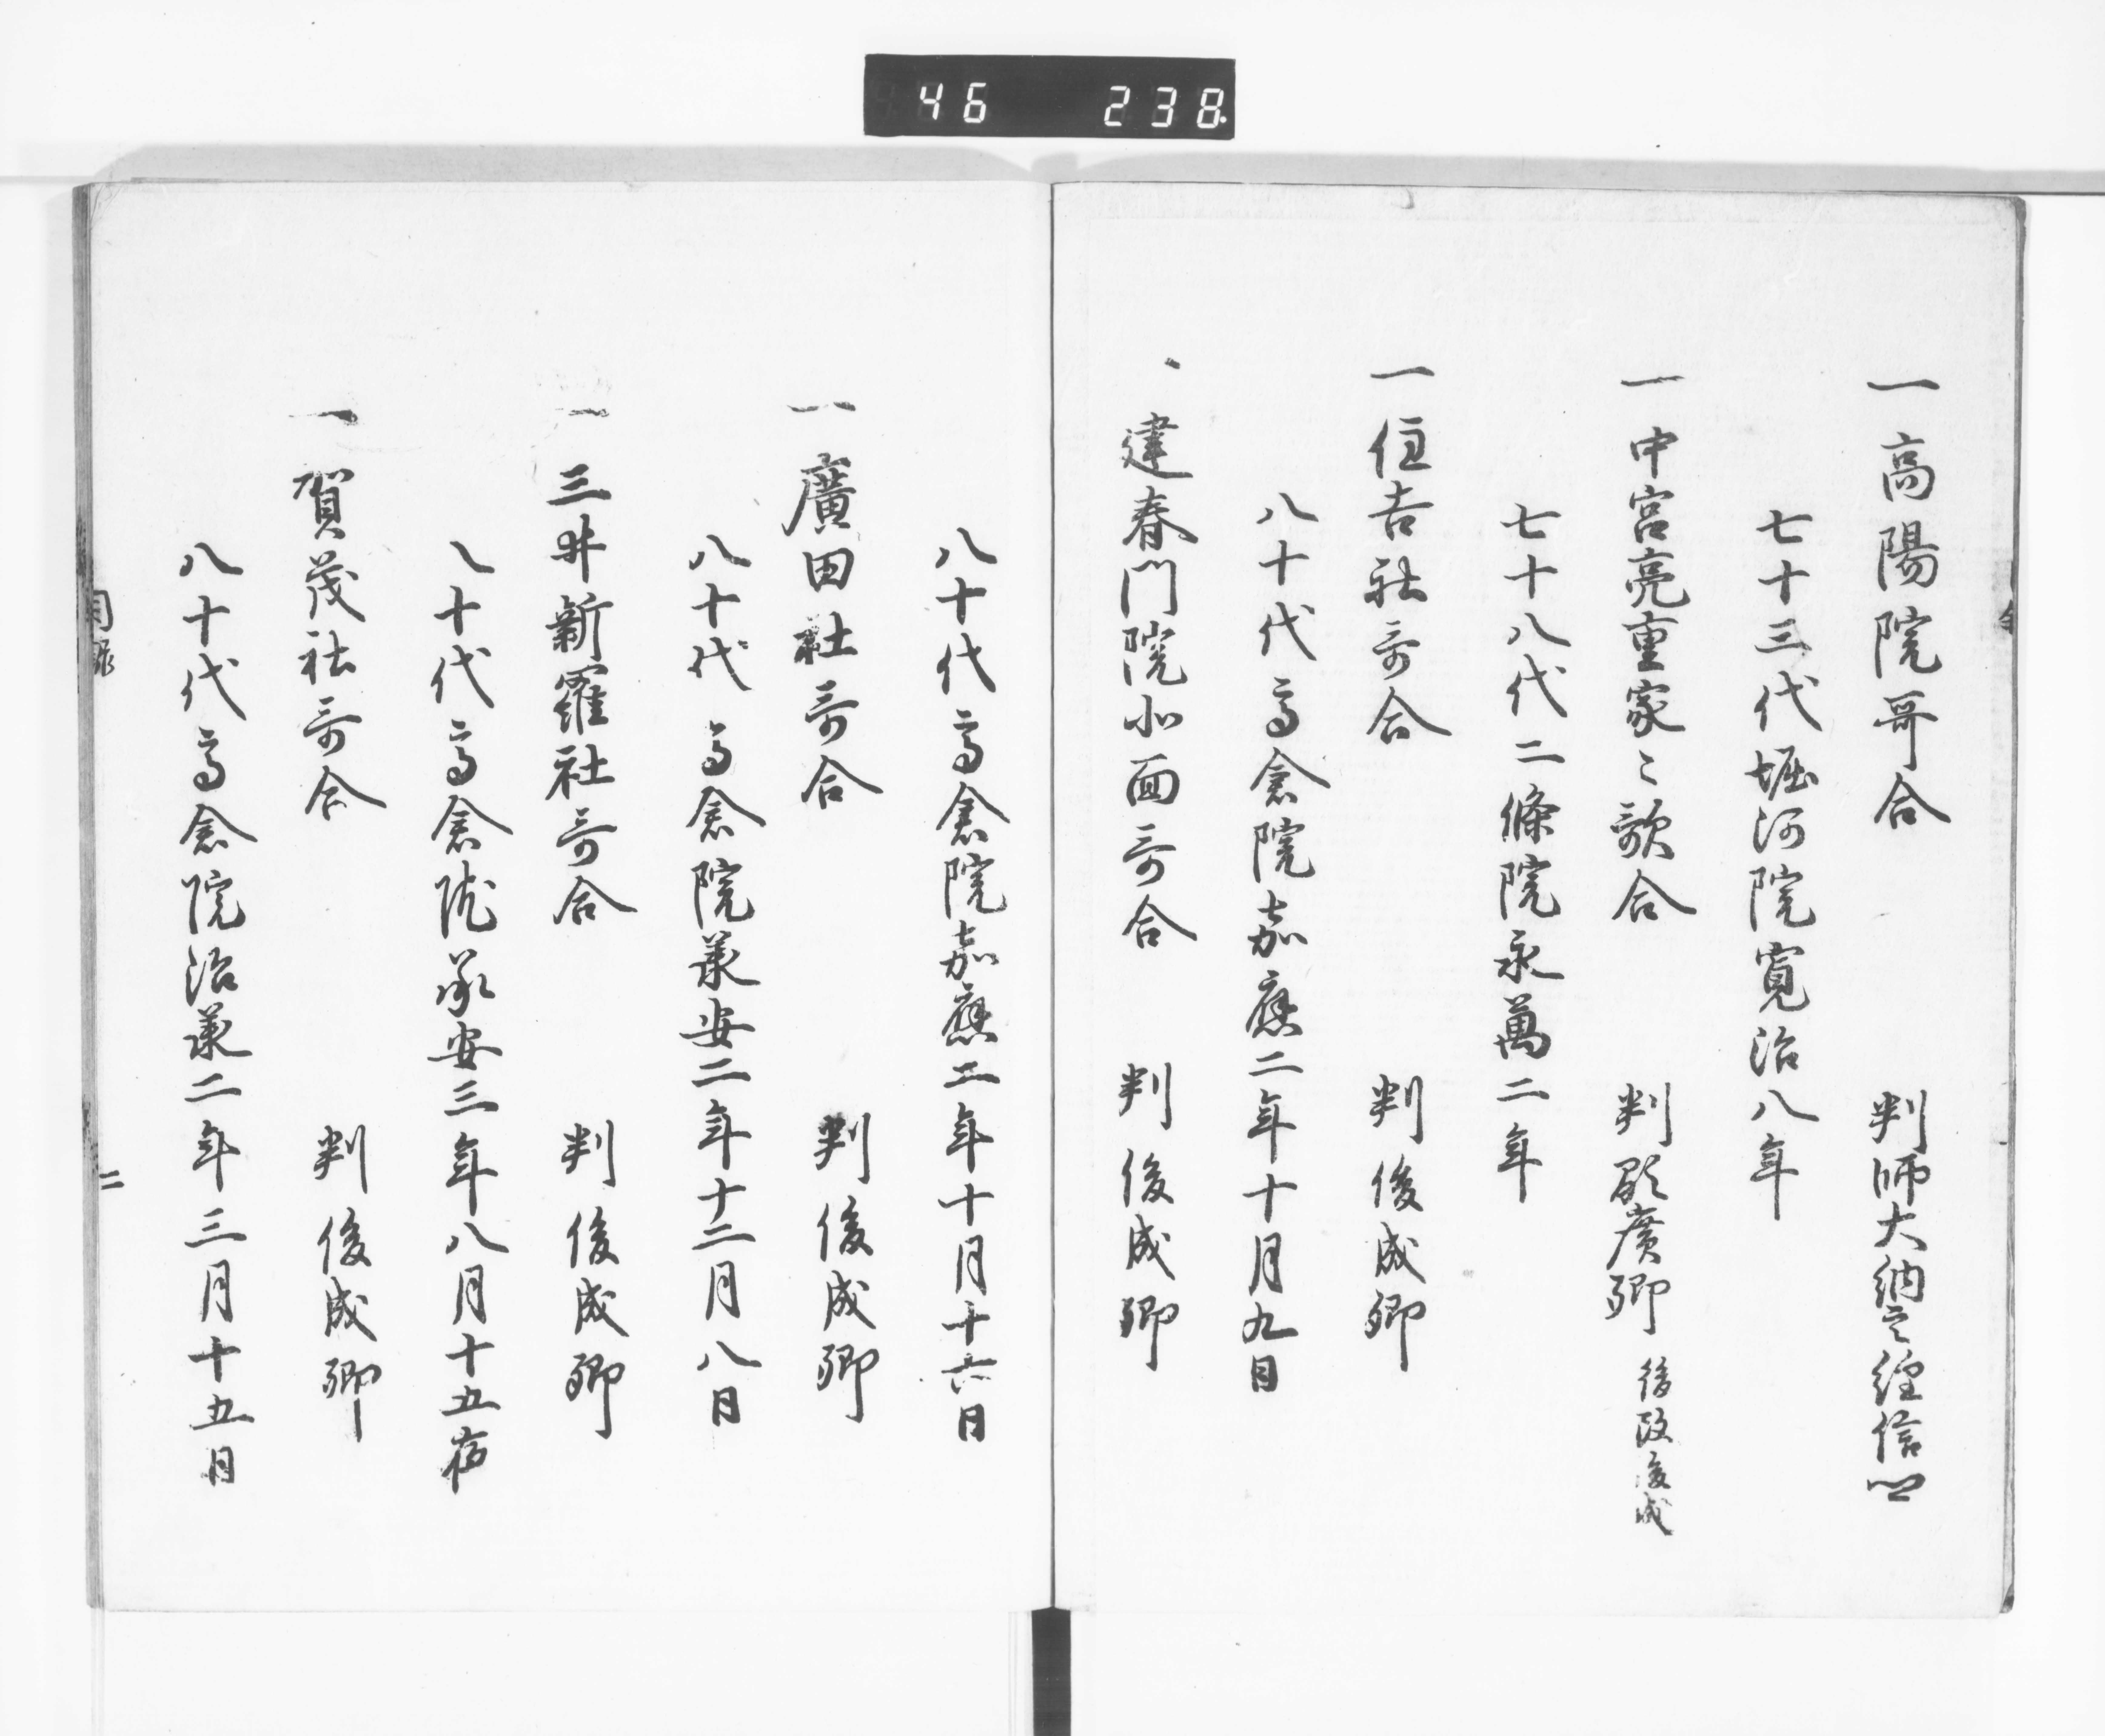 46 238
一高陽院哥合 判師大納言経信卿
七十三代堀河院寛治八年
一中宮亮重家〻歌合 判顕廣卿 後改俊成
七十八代二條院永萬二年
一住吉社哥合 判俊成卿
八十代高倉院嘉應二年十月九日
、建春門院北面哥合 判俊成卿
八十代高倉院嘉應二年十月十六日
一廣田社哥合 判俊成卿
八十代高倉院承安二年十二月八日
一三井新羅社哥合 判俊成卿
八十代高倉院承安三年八月十五夜
一賀茂社哥合 判俊成卿
八十代高倉院治承二年三月十五日
目録 二